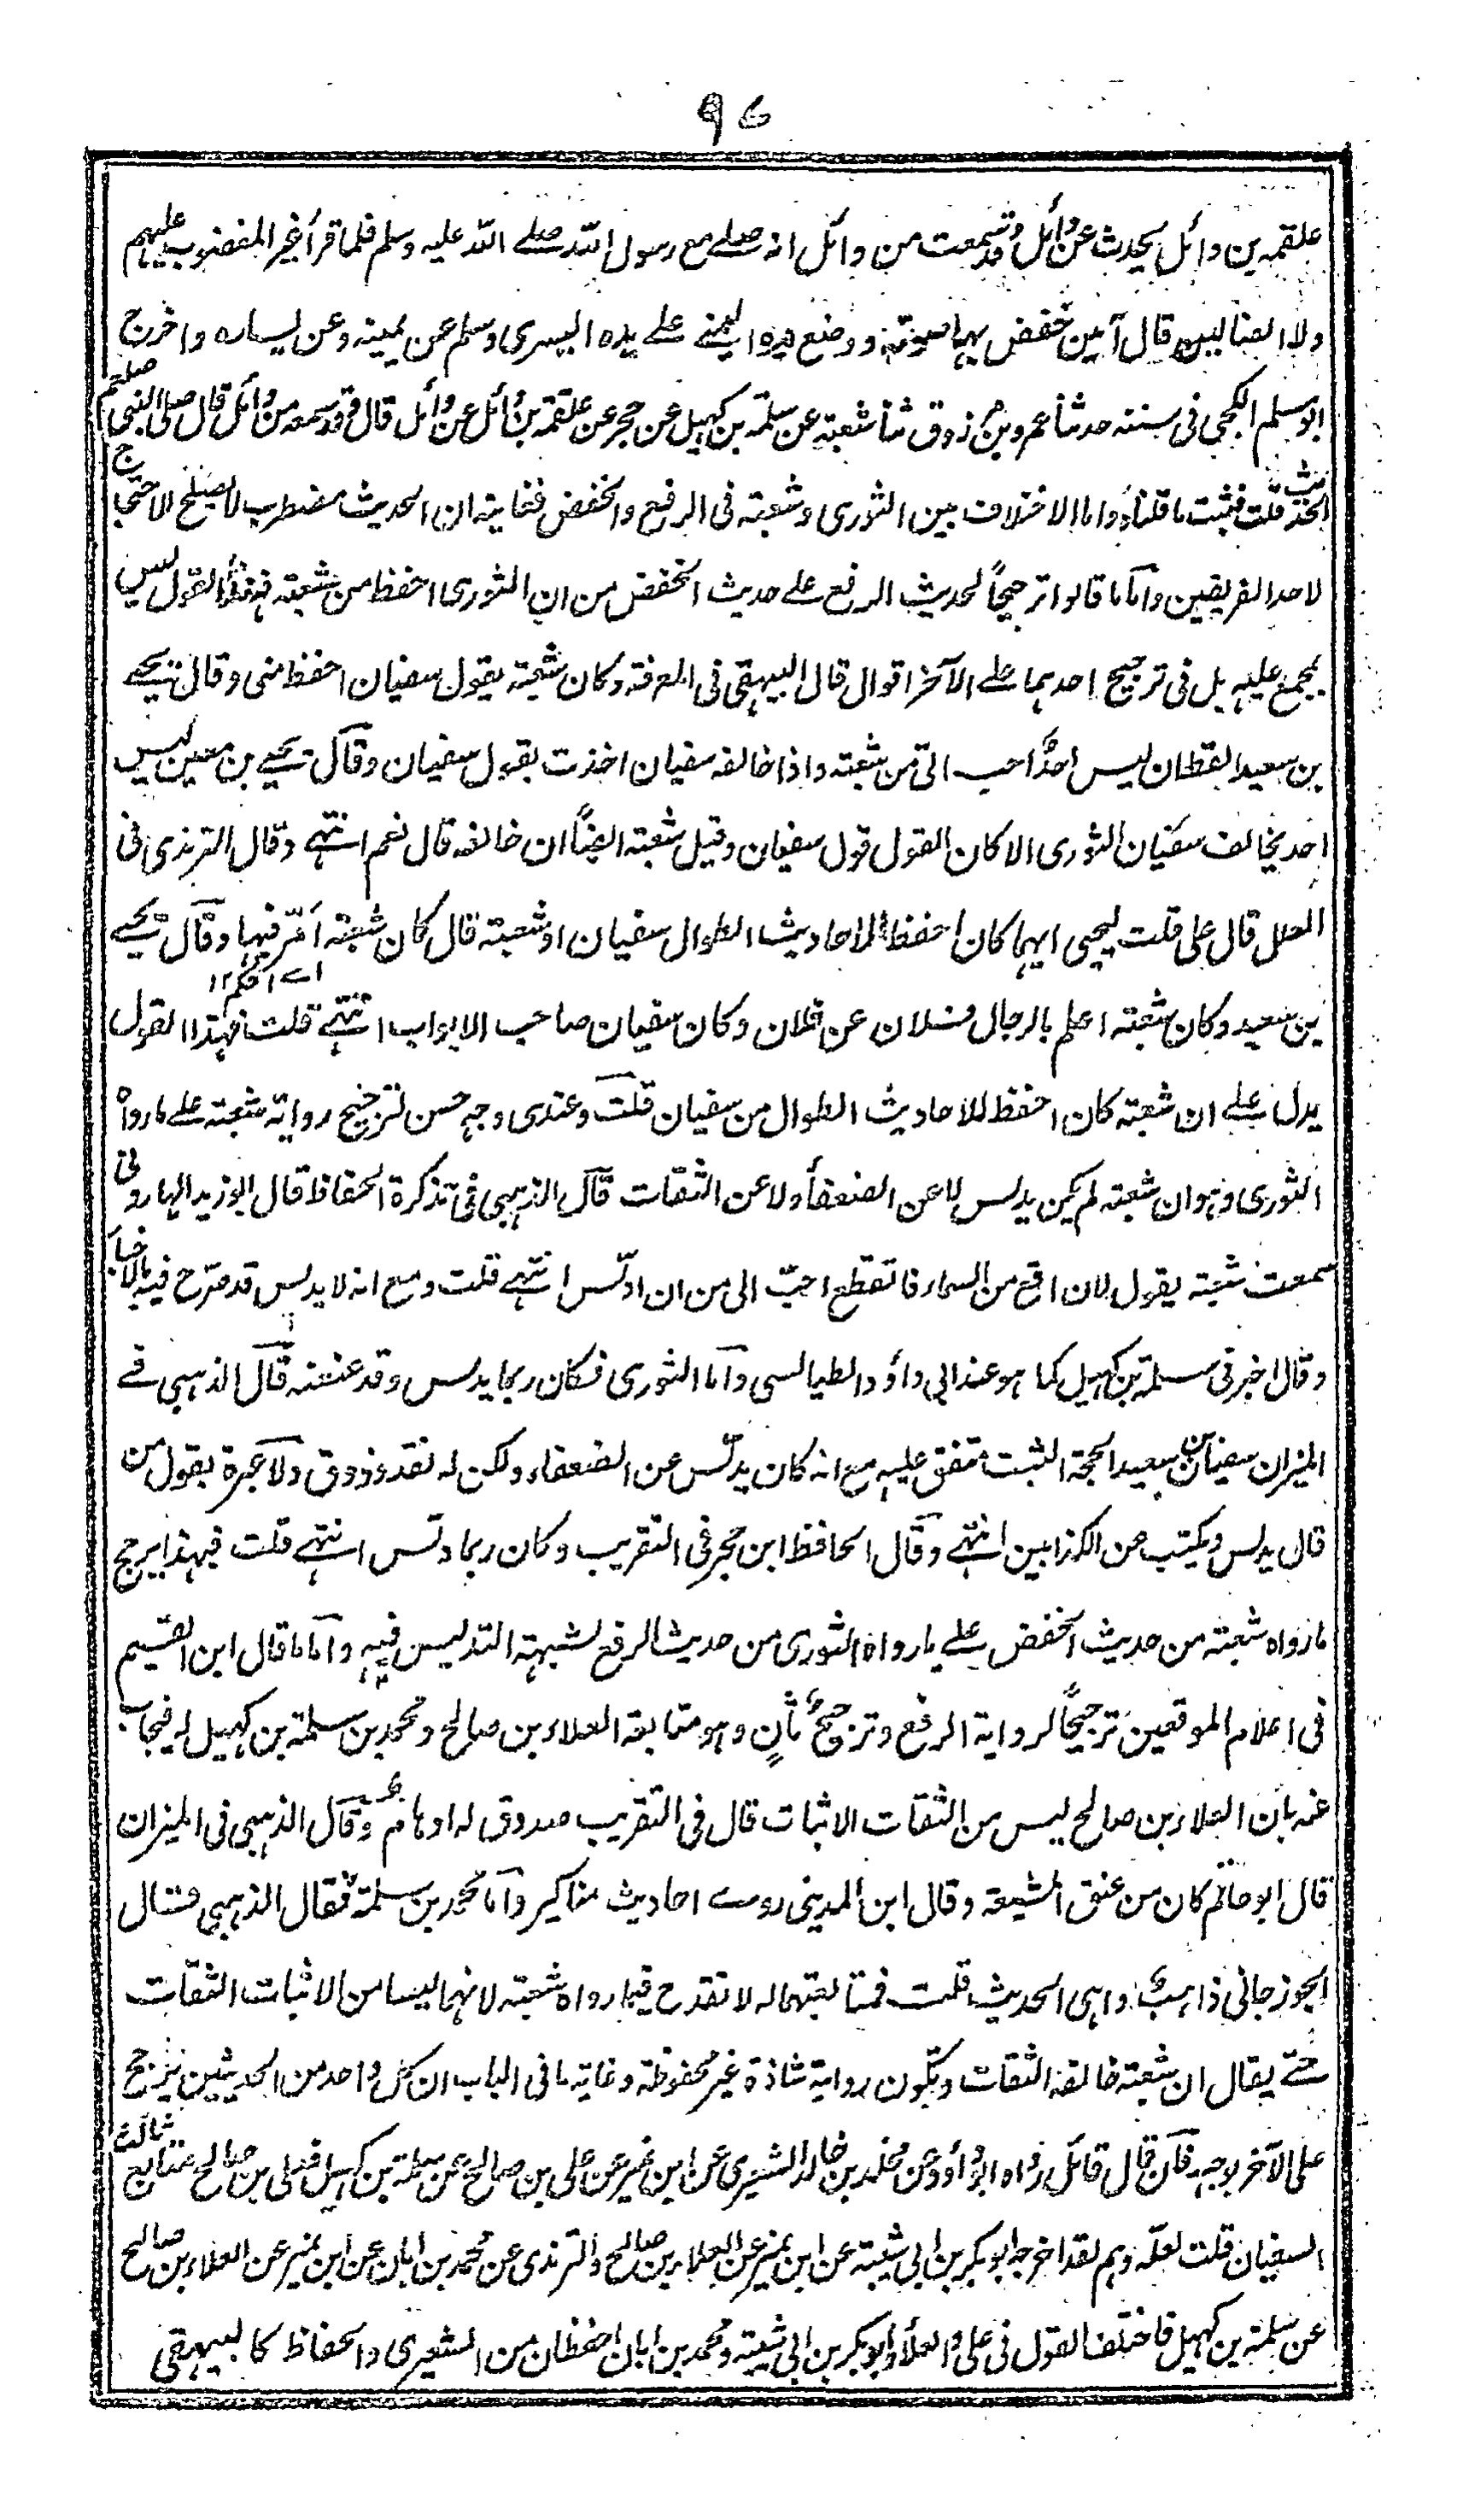 ٩٧
علقمہ بن وائل یحدث عن وائل وقد سمعت من وائل انہ صلے مع رسول اللہ صلے اللہ علیہ وسلم فلما قرأ غیر المغضوب علیہم
ولا الضالین قال آمین خفض بہا صوتہ ووضع یدہ الیمنے علے یدہ الیسری وسلم عن یمینہ وعن یسارہ واخرج
ابو مسلم الکجی فی سننہ حدثنا عمرو بن مرزوق ثنا شعبۃ عن سلمۃ بن کہیل عن حجر عن علقمۃ بن وائل عن وائل قال وقد سمعہ من وائل قال صلی النبی صلعم
الحدیث قلت فثبت ما قلناہ واما الاختلاف بین الثوری وشعبۃ فی الرفع والخفض فغایتہ ان الحدیث مضطرب لا یصلح لاحتجاج
لاحد الفریقین واما ما قالوا ترجیحاً لحدیث الرفع علے حدیث الخفض من ان الثوری احفظ من شعبۃ فہذا القول لیس
بمجمع علیہ بل فی ترجیح احدہما علے الآخر اقوال قال البیہقی فی المعرفۃ وکان شعبۃ یقول سفیان احفظ منی وقال یحیے
بن سعید القطان لیس احدٌ احب الی من شعبۃ واذا خالفہ سفیان اخذت بقول سفیان وقال یحیے بن معین لیس
احد یخالف سفیان الثوری الا کان القول قول سفیان وقیل شعبۃ ایضاً ان خالفہ قال نعم انتہے وقال الترمذی فی
العلل قال علی قلت لیحیی ایہما کان احفظ للاحادیث الطوال سفیان او شعبۃ قال کان شعبۃ امرّ فیہا وقال یحیے
اے احکم ١٢
بن سعید وکان شعبۃ اعلم بالرجال فلان عن فلان وکان سفیان صاحب الابواب انتہے قلت فہذا القول
یدل علے ان شعبۃ کان احفظ للاحادیث الطوال من سفیان قلت وعندی وجہ حسن لترجیح روایۃ شعبۃ علے ما رواہ
الثوری وہو ان شعبۃ لم یکن یدلس لا عن الضعفاء ولا عن الثقات قال الذہبی فی تذکرۃ الحفاظ قال ابو زید الہاروی
سمعت شعبۃ یقول لان اقع من السماء فانقطع احبّ الی من ان ادلّس انتہے قلت ومع انہ لا یدلس قد صرّح فیہ بالاخبار
وقال اخبرنی سلمۃ بن کہیل کما ہو عند ابی داؤد الطیالسی واما الثوری فکان ربما یدلس وقد عنعنہ قال الذہبی فے
المیزان سفیان بن سعید الحجۃ الثبت متفق علیہ مع انہ کان یدلّس عن الضعفاء ولکن لہ نقد وذوق ولا عبرۃ بقول من
قال یدلس ویکتب عن الکذابین انتہے وقال الحافظ ابن حجر فی التقریب وکان ربما دلس انتہے قلت فبہذا یرجح
ما رواہ شعبۃ من حدیث الخفض علے ما رواہ الثوری من حدیث الرفع لشبہۃ التدلیس فیہ واما ما قال ابن القیم
فی اعلام الموقعین ترجیحاً لروایۃ الرفع وترجیحٌ ثانٍ وہو متابعۃ العلاء بن صالح ومحمد بن سلمۃ بن کہیل لہ فیجاب
عنہ بان العلاء بن صالح لیس من الثقات الاثبات قال فی التقریب صدوق لہ اوہام وقال الذہبی فی المیزان
قال ابو حاتم کان من عنق الشیعۃ وقال ابن المدینی روے احادیث مناکیر واما محمد بن سلمۃ فقال الذہبی قال
الجوزجانی ذاہب واہی الحدیث قلت فمتابعتہما لہ لا تقدح فیما رواہ شعبۃ لانہما لیسا من الاثبات الثقات
حتے یقال ان شعبۃ خالفہ الثقات وتکون روایۃ شاذۃ غیر محفوظۃ وغایۃ ما فی الباب ان کل واحد من الحدیثین یترجح
علی الآخر بوجہ فان قال قائل رواہ ابو داؤد عن مخلد بن خالد الشعیری عن ابن نمیر عن علی بن صالح عن سلمۃ بن کہیل فعلی بن صالح متابع ثالث
السفیان قلت لعلّہ وہم لقد اخرجہ ابو بکر بن ابی شیبۃ عن ابن نمیر عن العلاء بن صالح والترمذی عن محمد بن ابان عن ابن نمیر عن العلاء بن صالح
عن سلمۃ بن کہیل فاختلف القول فی علی والعلاء وابو بکر بن ابی شیبۃ ومحمد بن ابان احفظان من الشعیری والحفاظ کالبیہقی